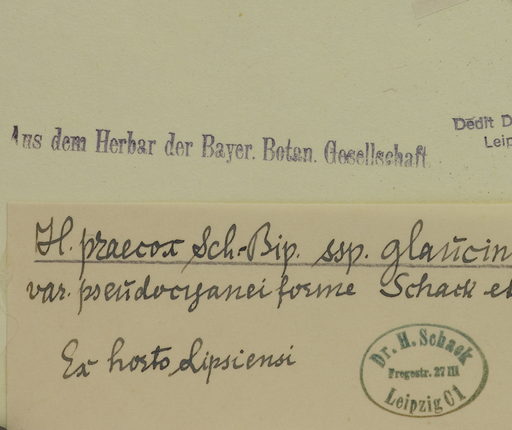 Aus dem Herbar der Bayer. Botan. Gesellschaft
Dedit D
Leip
H. praecox Sch.-Bip. ssp. glaucin
var. pseudocyaneiforme Schack et
Ex horto Lipsiensi
Dr. H. Schack
Fregestr. 27 III
Leipzig C1